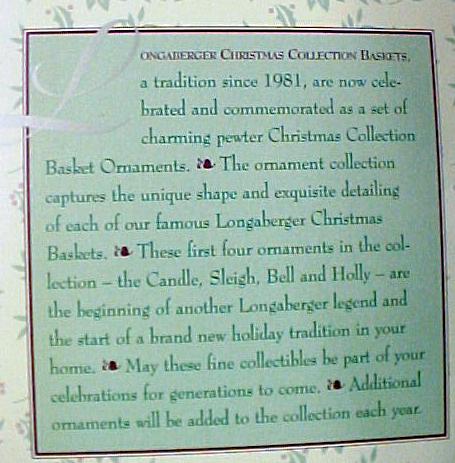 LONGABERGER CHRISTMAS COLLECTION BASKETS,
a tradition since 1981, are now cele-
brated and commemorated as a set of
charming pewter Christmas Collection
Basket Ornaments. ❧ The ornament collection
captures the unique shape and exquisite detailing
of each of our famous Longaberger Christmas
Baskets. ❧ These first four ornaments in the col-
lection – the Candle, Sleigh, Bell and Holly – are
the beginning of another Longaberger legend and
the start of a brand new holiday tradition in your
home. ❧ May these fine collectibles be part of your
celebrations for generations to come. ❧ Additional
ornaments will be added to the collection each year.